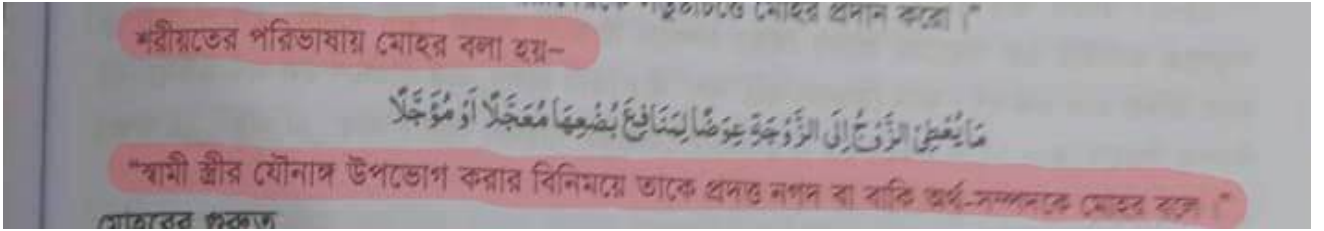 মোহর প্রদান করো।"
শরীয়তের পরিভাষায় মোহর বলা হয়–
مَا يُعْطِيْ الزَّوْجُ إِلَى الزَّوْجَةِ عِوَضًا لِمَنَافِعَ بُضْعِهَا مُعَجَّلًا أَوْ مُؤَجَّلًا
"স্বামী স্ত্রীর যৌনাঙ্গ উপভোগ করার বিনিময়ে তাকে প্রদত্ত নগদ বা বাকি অর্থ-সম্পদকে মোহর বলে।"
মোহরের গুরুত্ব